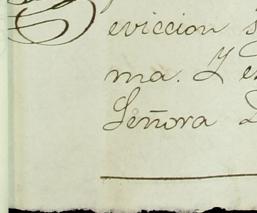 eviccion
ma. Y
Señora